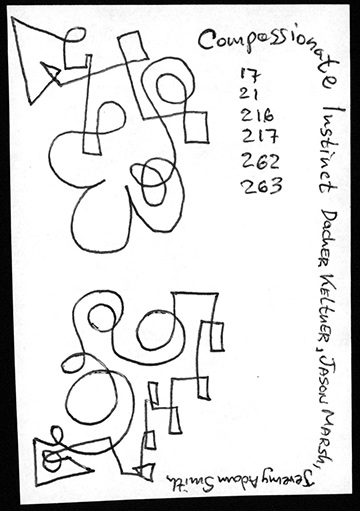 Compassionate Instinct Dacher Keltner, Jason Marsh,
Jeremy Adam Smith
17
21
216
217
262
263